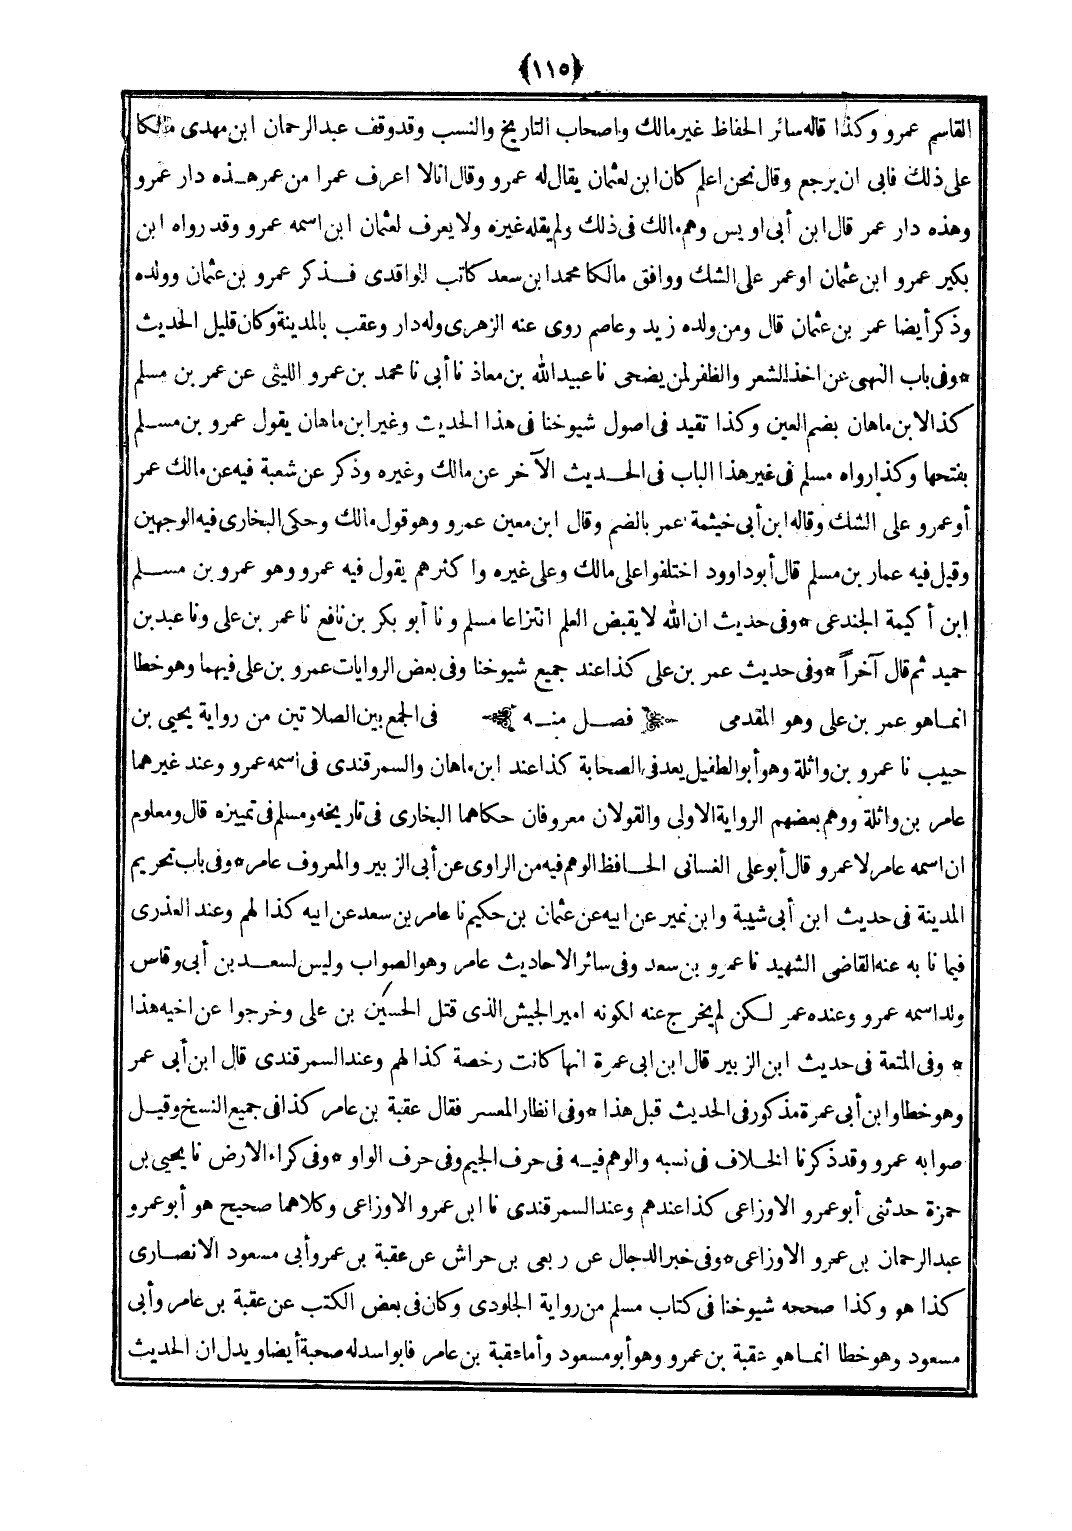 ﴿١١٥﴾
القاسم عمرو وكذا قاله سائر الحفاظ غير مالك واصحاب التاريخ والنسب وقد وقف عبد الرحمان ابن مهدى مالكا
على ذلك فابى ان يرجع وقال نحن اعلم كان ابن لعثمان يقال له عمرو وقال انا لا اعرف عمرا من عمر هذه دار عمرو
وهذه دار عمر قال ابن أبى اويس وهم مالك فى ذلك ولم يقله غيره ولا يعرف لعثمان ابن اسمه عمرو وقد رواه ابن
بكير عمرو ابن عثمان اوعمر على الشك ووافق مالكا محمد ابن سعد كاتب الواقدى فذكر عمرو بن عثمان وولده
وذكر أيضا عمر بن عثمان قال ومن ولده زيد وعاصم روى عنه الزهرى وله دار وعقب بالمدينة وكان قليل الحديث
* وفى باب النهى عن اخذ الشعر والظفر لمن يضحى نا عبيد الله بن معاذ نا أبى نا محمد بن عمرو الليثى عن عمر بن مسلم
كذا لابن ماهان بضم العين وكذا تقيد فى اصول شيوخنا فى هذا الحديث وغير ابن ماهان يقول عمرو بن مسلم
بفتحها وكذا رواه مسلم فى غير هذا الباب فى الحديث الآخر عن مالك وغيره وذكر عن شعبة فيه عن مالك عمر
أو عمرو على الشك وقاله ابن أبى خيثمة عمر بالضم وقال ابن معين عمرو وهو قول مالك وحكى البخارى فيه الوجهين
وقيل فيه عمار بن مسلم قال أبو داوود اختلفوا على مالك وعلى غيره واكثرهم يقول فيه عمرو وهو عمرو بن مسلم
ابن أكيمة الجندعى * وفى حديث ان الله لا يقبض العلم انتزاعا مسلم ونا أبو بكر بن نافع نا عمر بن على ونا عبد بن
حميد ثم قال آخراً * وفى حديث عمر بن على كذا عند جميع شيوخنا وفى بعض الروايات عمرو بن على فيهما وهو خطا
انما هو عمر بن على وهو المقدمى فصل منه فى الجمع بين الصلاتين من رواية يحيى بن
حبيب نا عمرو بن واثلة وهو أبو الطفيل يعد فى الصحابة كذا عند ابن ماهان والسمرقندى فى اسمه عمرو وعند غيرهما
عامر بن واثلة ووهم بعضهم الرواية الاولى والقولان معروفان حكاهما البخارى فى تاريخه ومسلم فى تمييزه قال ومعلوم
ان اسمه عامر لا عمرو قال أبو على الغسانى الحافظ الوهم فيه من الراوى عن أبى الزبير والمعروف عامر * وفى باب تحريم
المدينة فى حديث ابن أبى شيبة وابن نمير عن ابيه عن عثمان بن حكيم نا عامر بن سعد عن ابيه كذا لهم وعند العذرى
فيما نا به عنه القاضى الشهيد نا عمرو بن سعد وفى سائر الاحاديث عامر وهو الصواب وليس لسعد بن أبى وقاس
ولد اسمه عمرو وعنده عمر لكن لم يخرج عنه لكونه امير الجيش الذى قتل الحسين بن على وخرجوا عن اخيه هذا
* وفى المتعة فى حديث ابن الزبير قال ابن ابى عمرة انها كانت رخصة كذا لهم وعند السمرقندى قال ابن أبى عمر
وهو خطا وابن أبى عمرة مذكور فى الحديث قبل هذا * وفى انظار المعسر فقال عقبة بن عامر كذا فى جميع النسخ وقيل
صوابه عمرو وقد ذكرنا الخلاف فى نسبه والوهم فيه فى حرف الجيم وفى حرف الواو * وفى كراء الارض نا يحيى بن
حمزة حدثنى أبو عمرو الاوزاعى كذا عندهم وعند السمرقندى نا ابن عمرو الاوزاعى وكلاهما صحيح هو أبو عمرو
عبد الرحمان بن عمرو الاوزاعى * وفى خبر الدجال عن ربعى بن حراش عن عقبة بن عمرو أبى مسعود الانصارى
كذا هو وكذا صححه شيوخنا فى كتاب مسلم من رواية الجلودى وكان فى بعض الكتب عن عقبة بن عامر وأبى
مسعود وهو خطا انما هو عقبة بن عمرو وهو أبو مسعود وأما عقبة بن عامر فابو اسد له صحبة أيضا ويدل ان الحديث